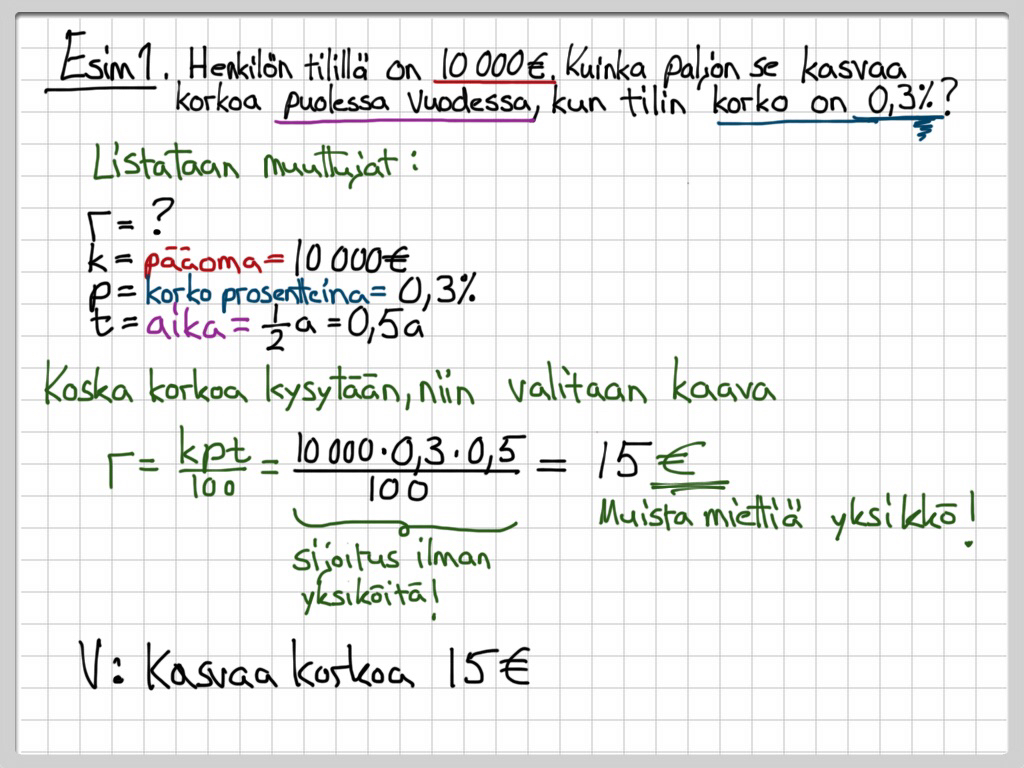 Esim 1. Henkilön tilillä on 10 000€. Kuinka paljon se kasvaa
korkoa puolessa vuodessa, kun tilin korko on 0,3%?
Listataan muuttujat:
r = ?
k = pääoma = 10 000€
p = korko prosentteina = 0,3%
t = aika = 1/2 a = 0,5a
Koska korkoa kysytään, niin valitaan kaava
r = kpt/100 = 10 000 · 0,3 · 0,5/100 = 15 €
Muista miettiä yksikkö!
sijoitus ilman
yksiköitä!
V: Kasvaa korkoa 15€